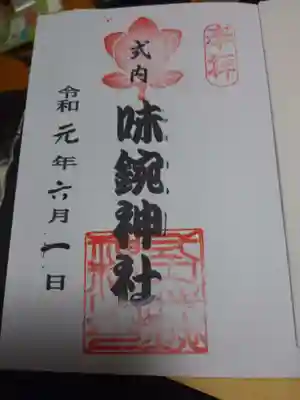 奉拝
式内
味鋺神社
令和元年六月一日